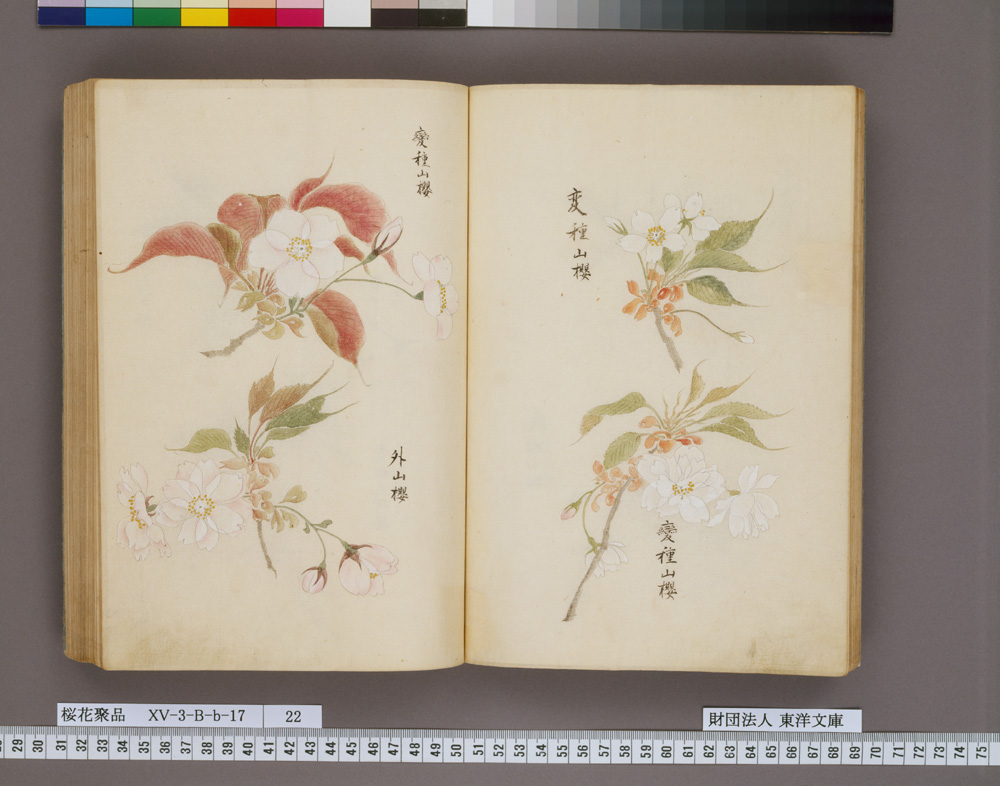 変種山櫻
變種山櫻
變種山櫻
外山櫻
桜花聚品 XV-3-B-b-17 22
財団法人 東洋文庫
29 30 31 32 33 34 35 36 37 38 39 40 41 42 43 44 45 46 47 48 49 50 51 52 53 54 55 56 57 58 59 60 61 62 63 64 65 66 67 68 69 70 71 72 73 74 75